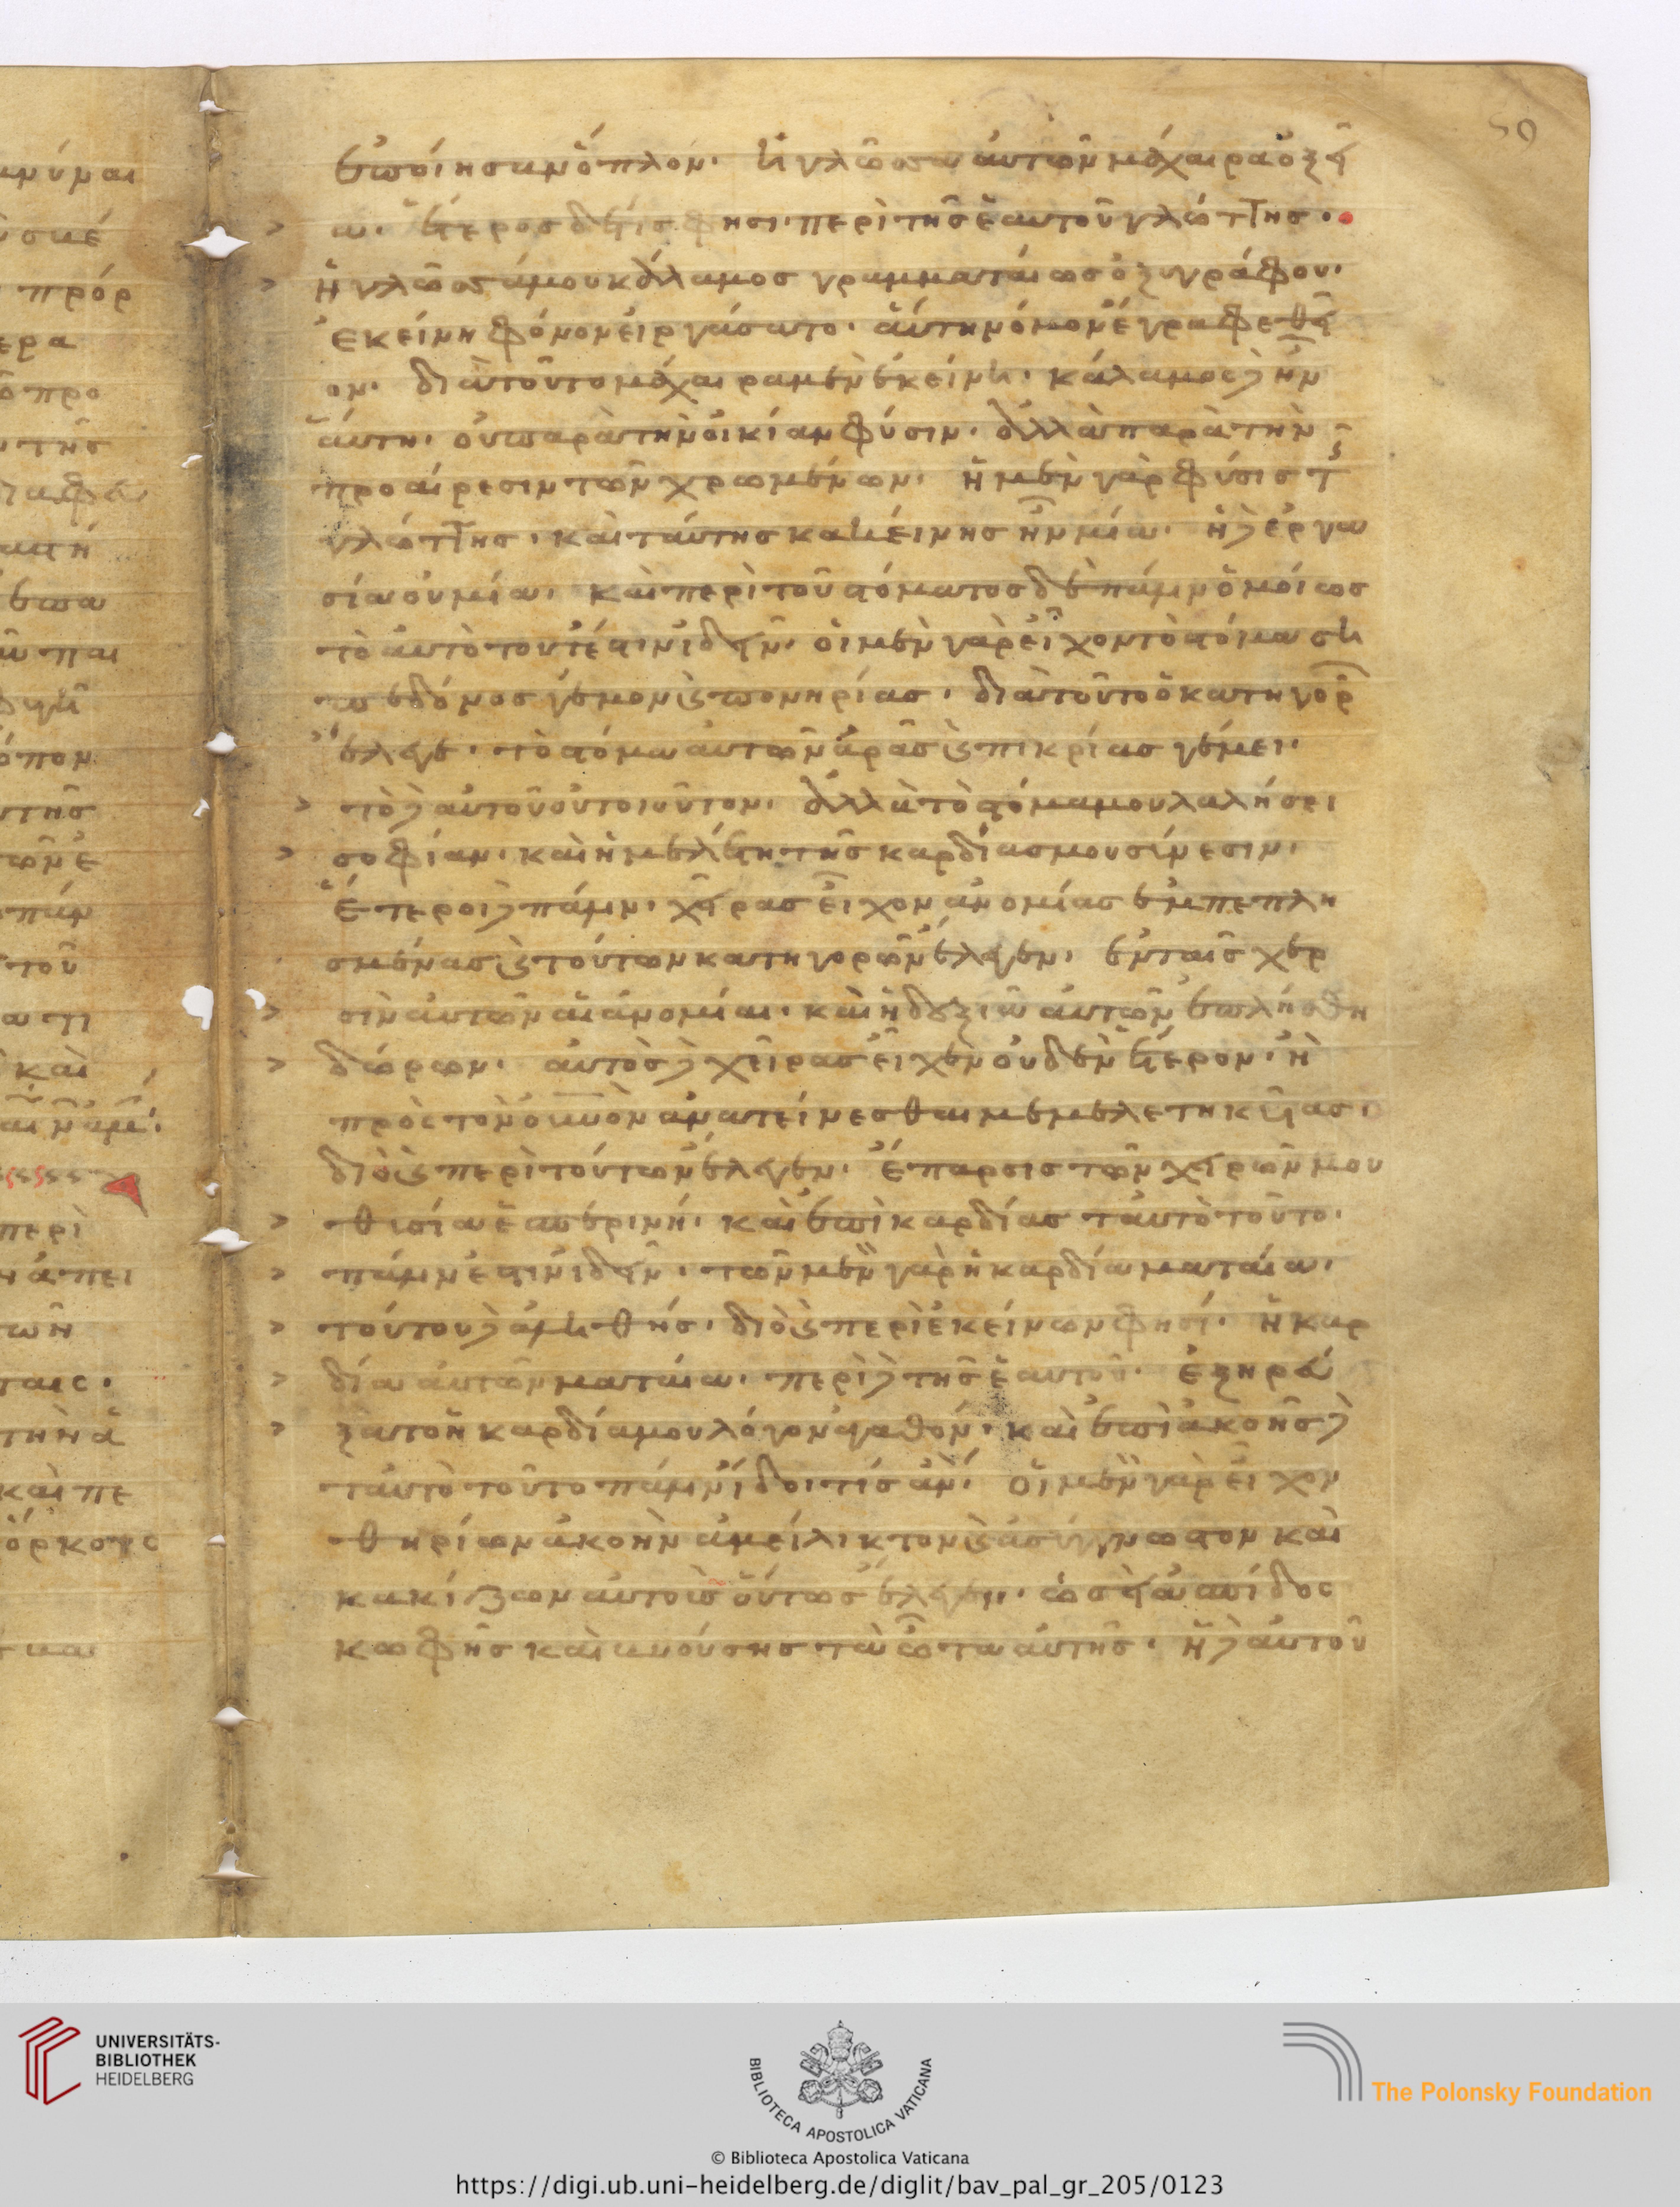 ἐποίησαν ὅπλον. ἡ γλῶσσα αὐτῶν μάχαιρα ὀξεῖ
α. ἕτερος δέ τίς φησι περὶ τῆς ἑαυτοῦ γλώττης.
ἡ γλῶσσά μου κάλαμος γραμματέως ὀξυγράφου.
ἐκείνη φόνον εἰργάσατο. αὕτη νόμον ἔγραφε θεῖ
ον. διὰ τοῦτο μάχαιρα μὲν ἐκείνη. κάλαμος δὲ ἦν
αὕτη. οὐ παρὰ τὴν οἰκείαν φύσιν. ἀλλὰ παρὰ τὴν
προαίρεσιν τῶν χρωμένων. ἡ μὲν γὰρ φύσις τῆς
γλώττης. καὶ ταύτης κἀκείνης ἦν μία. ἡ δὲ ἐργα
σία οὐ μία. καὶ περὶ τοῦ στόματος δὲ πάλιν ὁμοίως
τὸ αὐτὸ τοῦτό ἐστιν ἰδεῖν. οἱ μὲν γὰρ εἶχον τὸ στόμα ση
πεδόνος γέμον καὶ πονηρίας. διὰ τοῦτο ὁ κατηγορῶν
ἔλεγε. τὸ στόμα αὐτῶν ἀρᾶς καὶ πικρίας γέμει.
τὸ δὲ αὐτοῦ οὐ τοιοῦτον. ἀλλὰ τὸ στόμα μου λαλήσει
σοφίαν. καὶ ἡ μελέτη τῆς καρδίας μου σύνεσιν.
ἕτεροι δὲ πάλιν. χεῖρας εἶχον ἀνομίας ἐμπεπλη
σμένας καὶ τούτων κατηγορῶν ἔλεγεν. ἐν ταῖς χερ
σὶν αὐτῶν αἱ ἀνομίαι. καὶ ἡ δεξιὰ αὐτῶν ἐπλήσθη
δώρων. αὐτὸς δὲ χεῖρας εἶχεν οὐδὲν ἕτερον. ἢ
πρὸς τὸν οὐνὸν ἀνατείνεσθαι μεμελετηκυίας.
διὸ καὶ περὶ τούτων ἔλεγεν. ἔπαρσις τῶν χειρῶν μου
θυσία ἑσπερινή. καὶ ἐπὶ καρδίας ταὐτὸ τοῦτο.
πάλιν ἐστιν ἰδεῖν. τῶν μὲν γὰρ ἡ καρδία ματαία.
τούτου δὲ ἀληθής. διὸ καὶ περὶ ἐκείνων φησί. ἡ καρ
δία αὐτῶν ματαία. περὶ δὲ τῆς ἑαυτοῦ. ἐξηρεύ
ξατο ἡ καρδία μου λόγον ἀγαθόν. καὶ ἐπὶ ἀκοῆς δὲ
ταὐτὸ τοῦτο πάλιν ἴδοι τίς ἄν. οἱ μὲν γὰρ εἶχον
θηρίων ἀκοὴν ἀμείλικτον καὶ ἀσύγγνωστον καὶ
κακίζων αὐτοὺς οὕτως ἔλεγεν. ὡσεὶ ἀσπίδος
κωφῆς καὶ βυούσης τὰ ὦτα αὐτῆς. ἡ δὲ αὐτοῦ
UNIVERSITÄTS-
BIBLIOTHEK
HEIDELBERG
BIBLIOTECA APOSTOLICA VATICANA
The Polonsky Foundation
© Biblioteca Apostolica Vaticana
https://digi.ub.uni-heidelberg.de/diglit/bav_pal_gr_205/0123